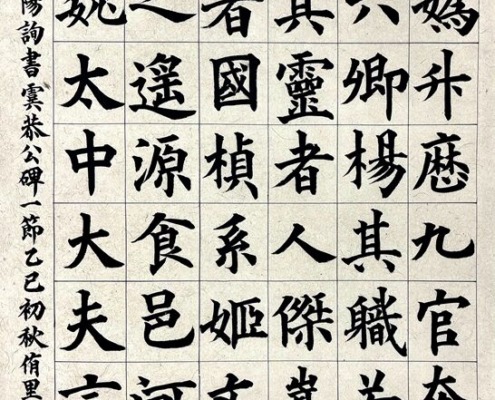 媯升歷九官
六卿楊其職
其靈者人傑
者國楨系姬
之遥源食邑河
魏太中大夫
陽詢書虞恭公碑一節乙巳初秋侑